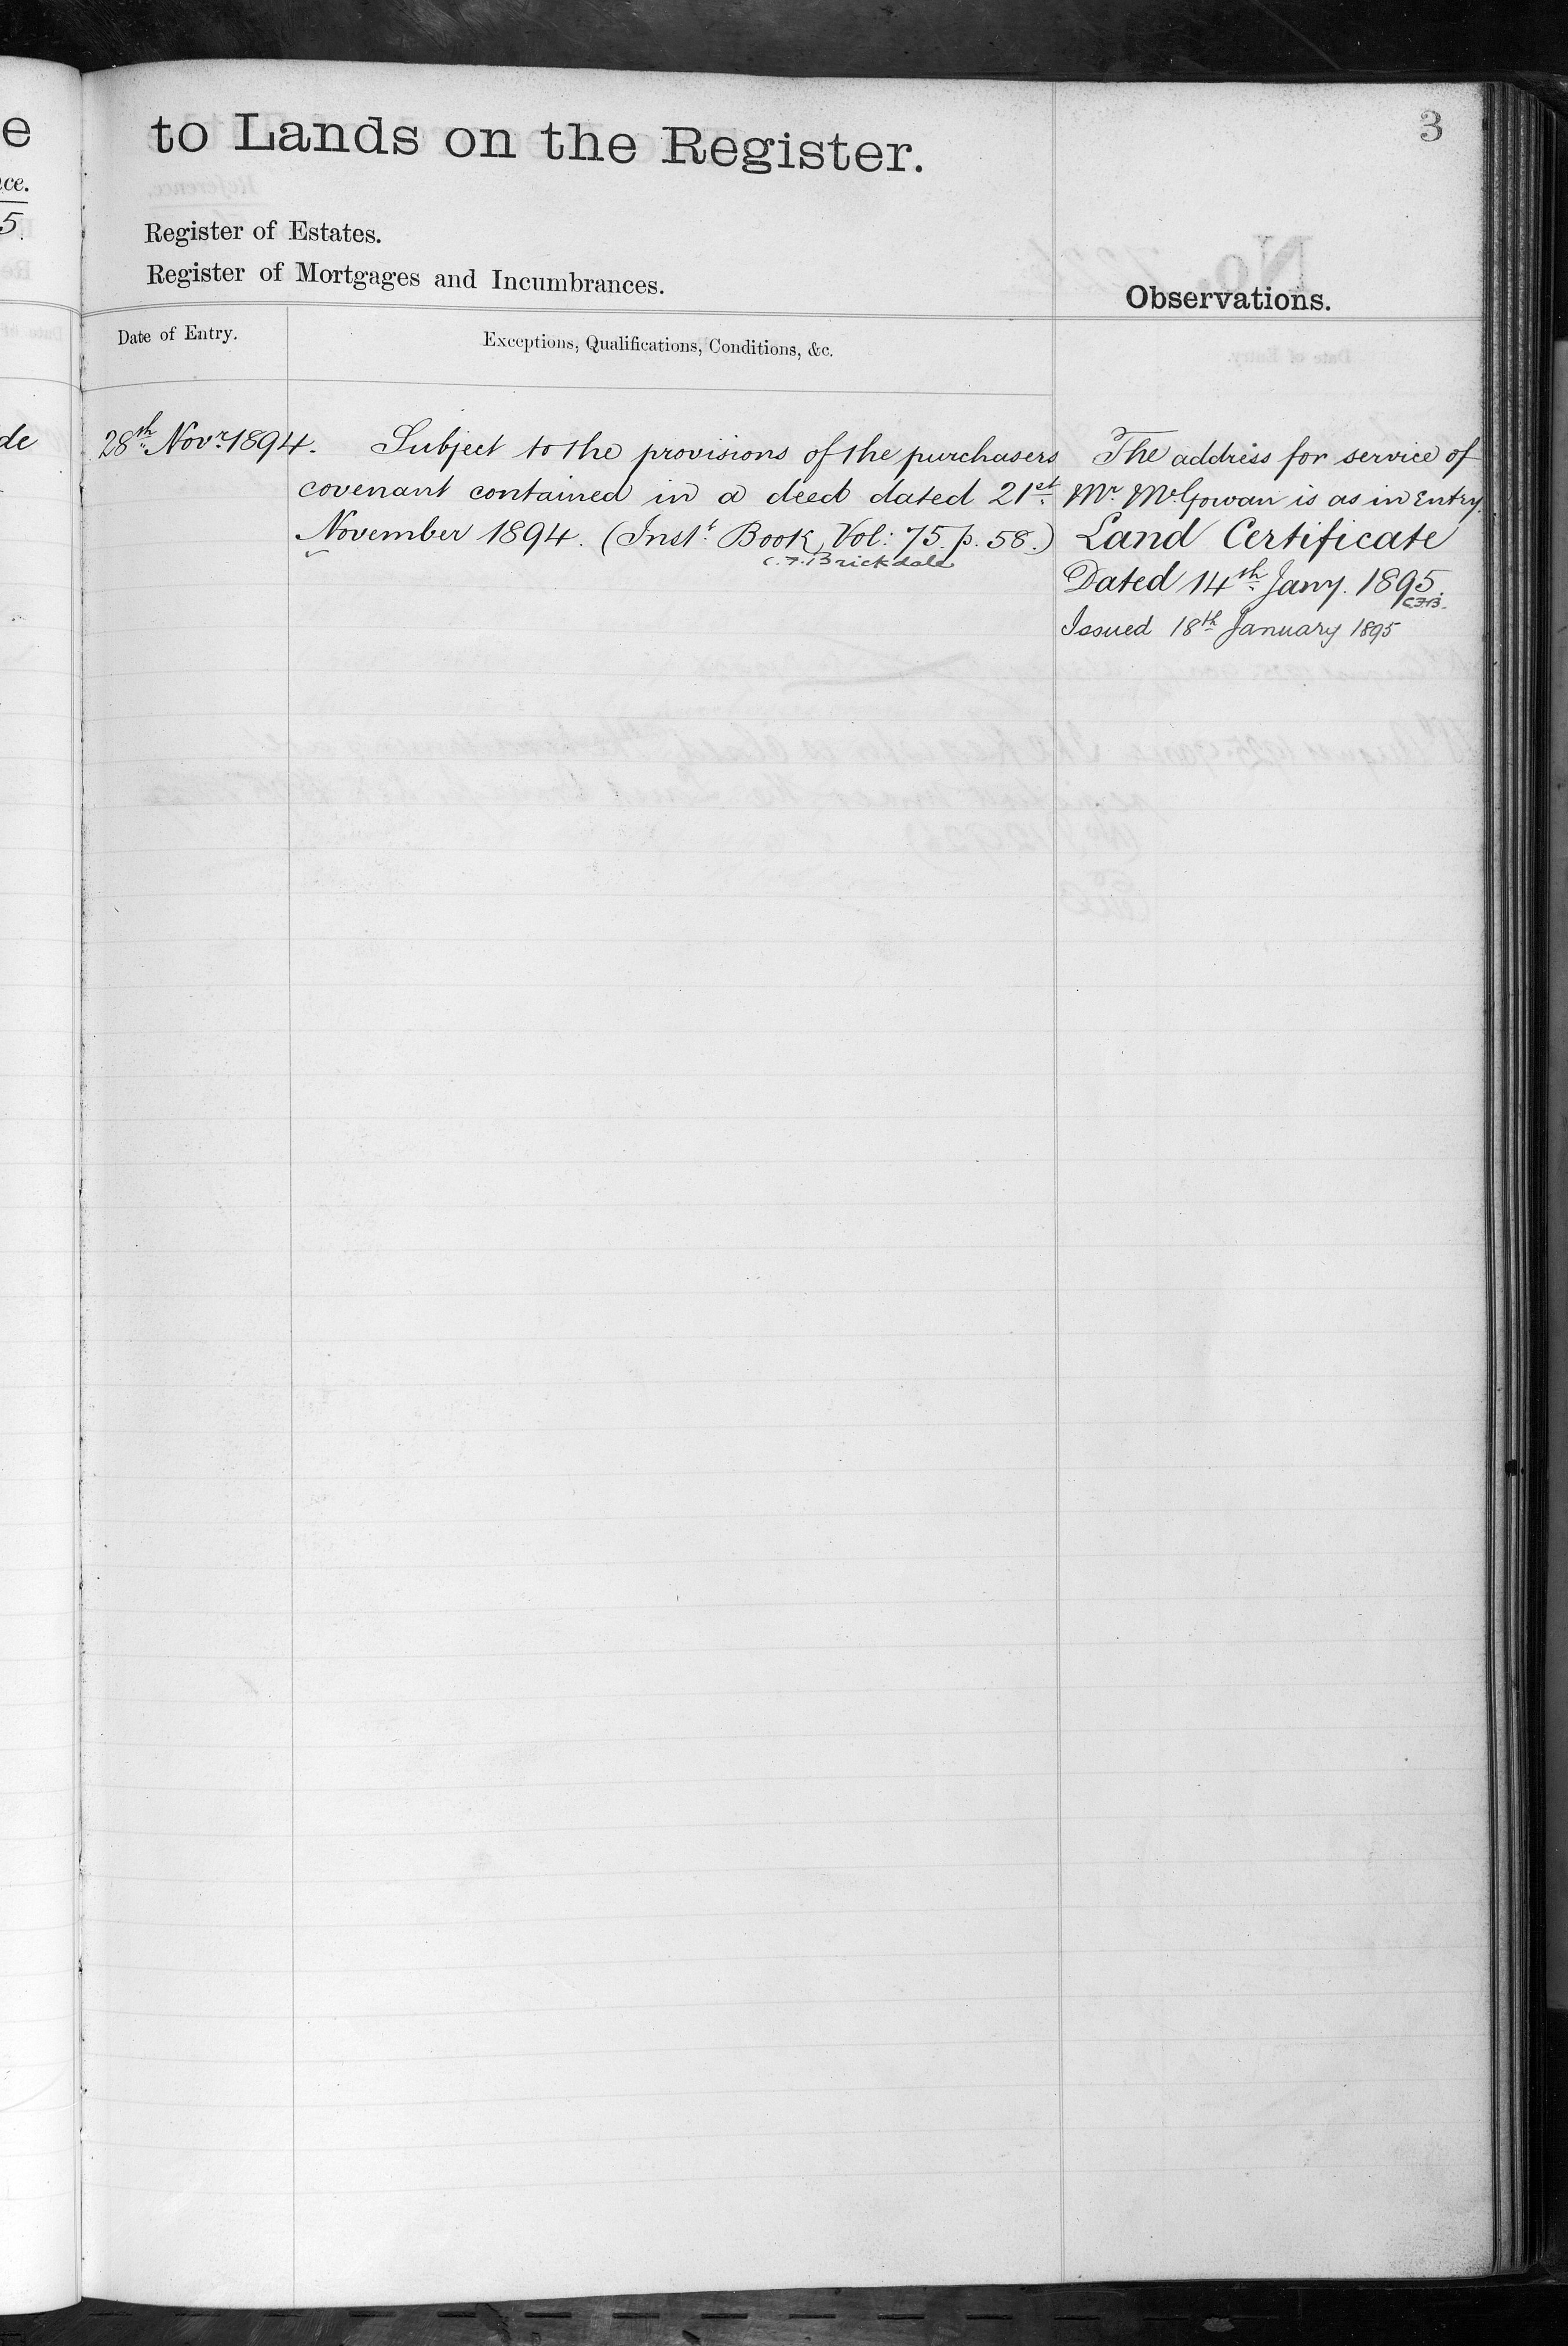 3
e
to Lands on the Register.
ce.
5.
Register of Estates.
Register of Mortgages and Incumbrances.
Observations.
Date of Entry.
Exceptions, Qualifications, Conditions, &c.
de
28th Novr 1894.
Subject to the provisions of the purchasers
covenant contained in a deed dated 21st
November 1894. (Instt Book, Vol: 75. p. 58.)
C.F. Brickdale
The address for service of
Mr. McGowan is as in Entry.
Land Certificate
Dated 14th Jany. 1895.
C.F.B.
Issued 18th January 1895